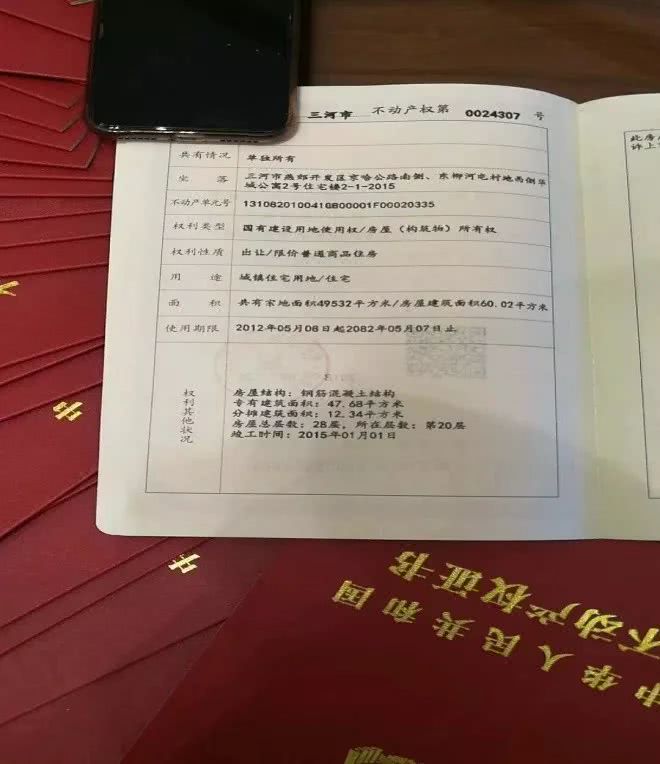 三河市 不动产权第 0024307 号
共有情况 单独所有
坐落 三河市燕郊开发区京哈公路南侧、东柳河屯村地西侧华
城公寓2号住宅楼2-1-2015
不动产单元号 131082010041GB00001F00020335
权利类型 国有建设用地使用权/房屋(构筑物)所有权
权利性质 出让/限价普通商品住房
用途 城镇住宅用地/住宅
面积 共有宗地面积49532平方米/房屋建筑面积60.02平方米
使用期限 2012年05月08日起2082年05月07日止
权利其他状况
房屋结构:钢筋混凝土结构
专有建筑面积:47.68平方米
分摊建筑面积:12.34平方米
房屋总层数:28层,所在层数:第20层
竣工时间:2015年01月01日
此房
诉上
书
中华人民共和国
不动产权证书